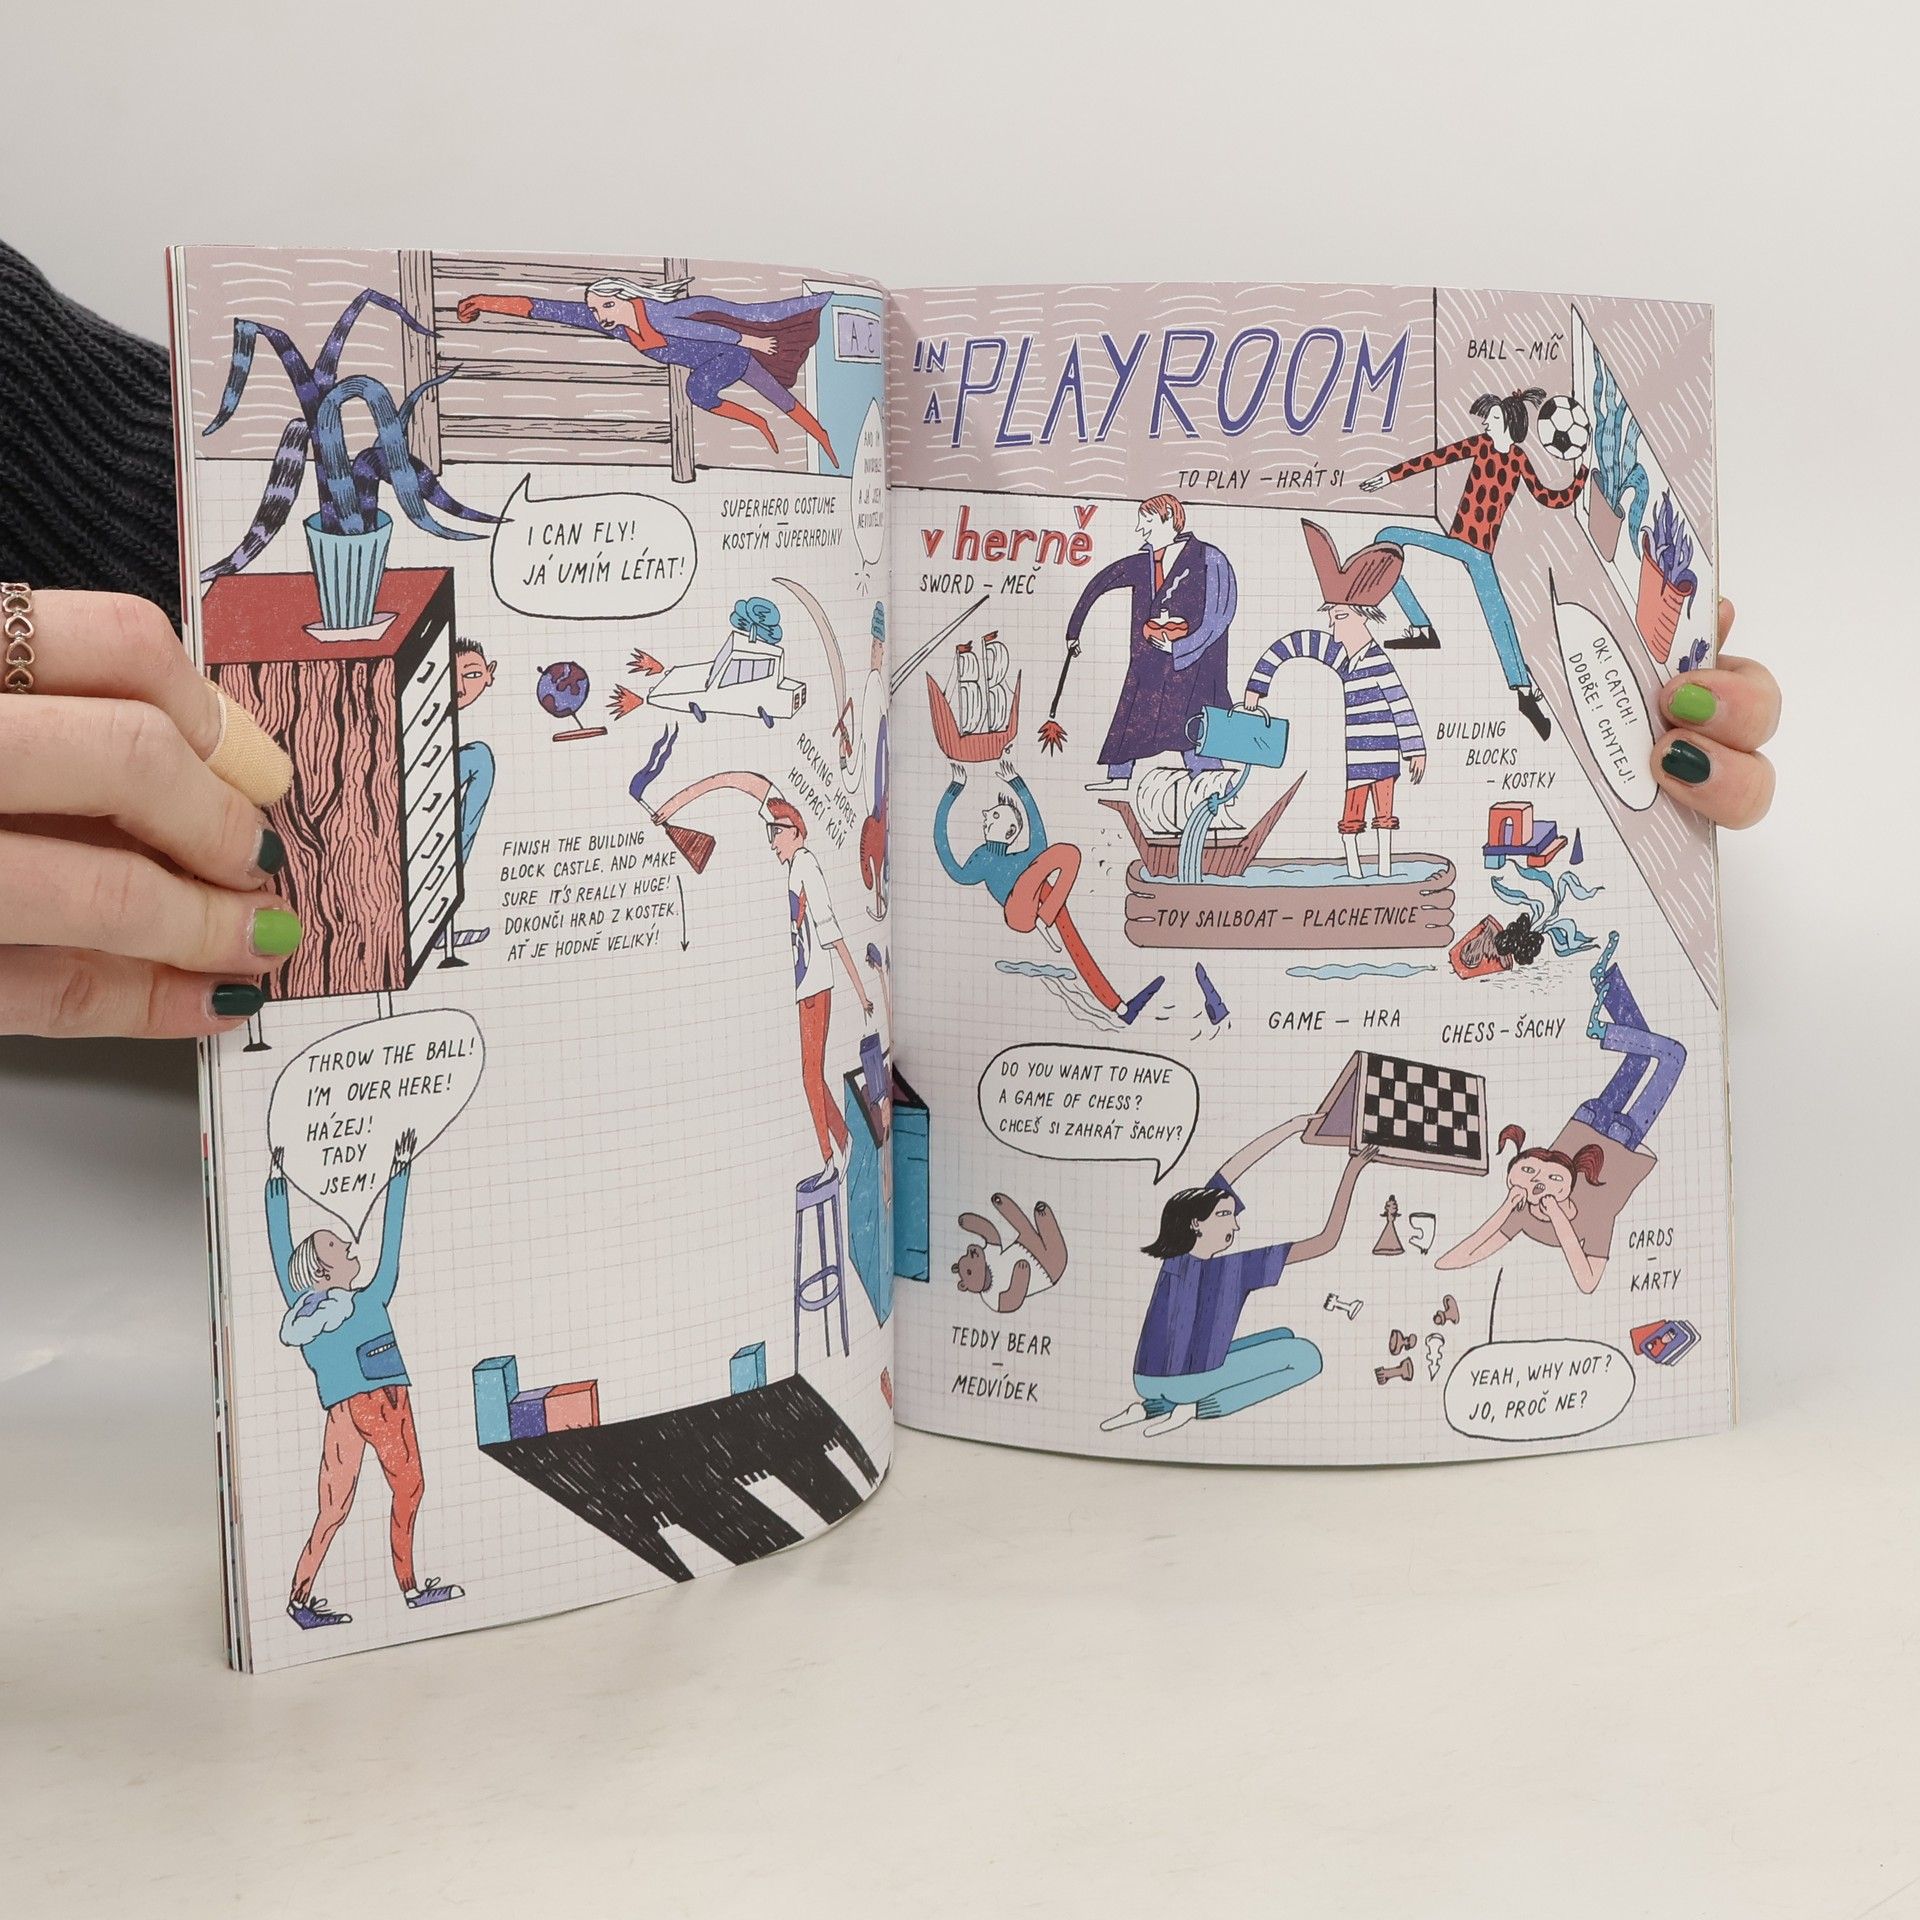 I CAN FLY!
JÁ UMÍM LÉTAT!
SUPERHERO COSTUME
–
KOSTÝM SUPERHRDINY
ROCKING – HORSE
HOUPACÍ KŮŇ
FINISH THE BUILDING
BLOCK CASTLE, AND MAKE
SURE IT'S REALLY HUGE!
DOKONČI HRAD Z KOSTEK.
AŤ JE HODNĚ VELIKÝ!
THROW THE BALL!
I'M OVER HERE!
HÁZEJ!
TADY
JSEM!
IN
A
PLAYROOM
BALL – MÍČ
TO PLAY – HRÁT SI
v herně
SWORD – MEČ
OK! CATCH!
DOBŘE! CHYTEJ!
BUILDING
BLOCKS
– KOSTKY
TOY SAILBOAT – PLACHETNICE
GAME – HRA
CHESS – ŠACHY
DO YOU WANT TO HAVE
A GAME OF CHESS?
CHCEŠ SI ZAHRÁT ŠACHY?
CARDS
–
KARTY
TEDDY BEAR
–
MEDVÍDEK
YEAH, WHY NOT?
JO, PROČ NE?